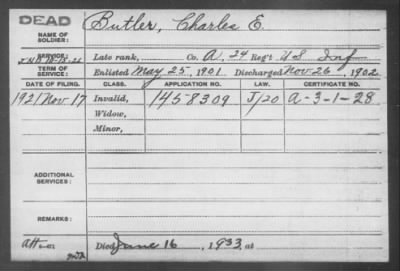 DEAD
NAME OF SOLDIER: Butler, Charles E.
SERVICE: Late rank, Co. A, 24 Reg't US Inf
TERM OF SERVICE: Enlisted May 25, 1901 Discharged Nov 26, 1902
DATE OF FILING. CLASS. APPLICATION NO. LAW. CERTIFICATE NO.
1921 Nov. 17 Invalid, 1458309 J/20 A-3-1-28
Widow,
Minor,
ADDITIONAL SERVICES:
REMARKS:
Died June 16, 1933, at